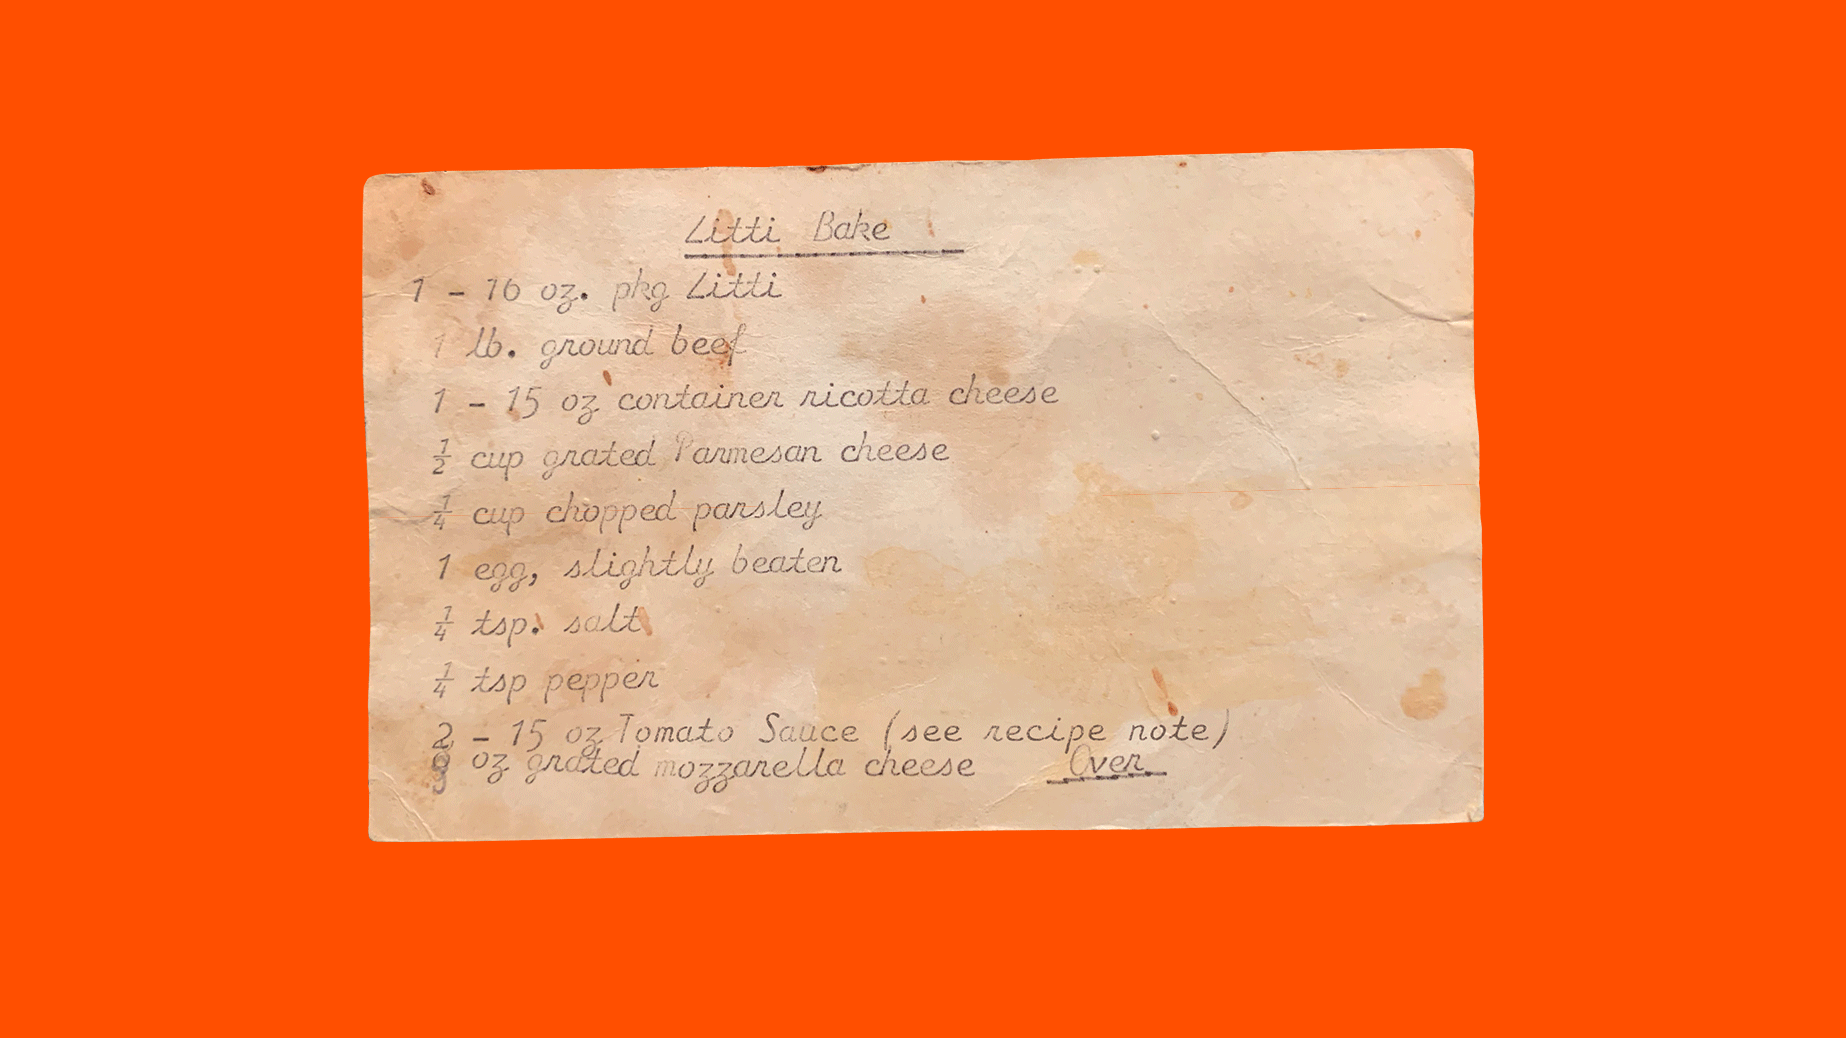 Litti Bake
1 - 16 oz. pkg Litti
1 lb. ground beef
1 - 15 oz container ricotta cheese
½ cup grated Parmesan cheese
¼ cup chopped parsley
1 egg, slightly beaten
¼ tsp. salt
¼ tsp pepper
2 - 15 oz Tomato Sauce (see recipe note)
oz grated mozzarella cheese Over